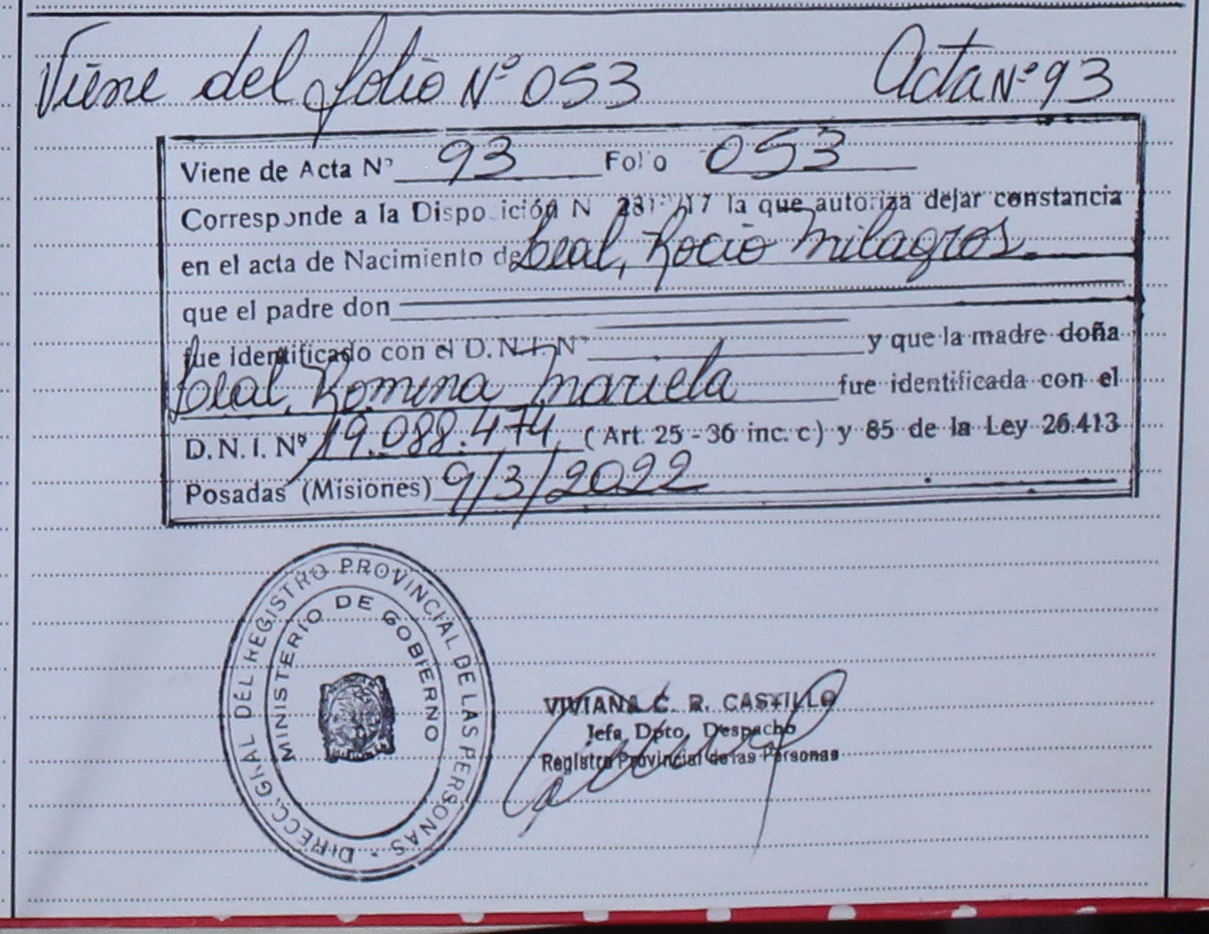 Viene del folio Nº 053 Acta Nº 93
Viene de Acta Nº 93 Folio 053
Corresponde a la Disposición N /17 la que autoriza dejar constancia
en el acta de Nacimiento de Leal, Rocio Milagros.
que el padre don
fue identificado con el D.N.I. Nº y que la madre doña
Leal, Romina Mariela fue identificada con el
D.N.I. Nº 19.088.474 (Art. 25 - 36 inc. c) y 85 de la Ley 26.413
Posadas (Misiones) 9/3/2022
DIRECC. GRAL DEL REGISTRO PROVINCIAL DE LAS PERSONAS
MINISTERIO DE GOBIERNO
VIVIANA C. R. CASTILLO
Jefa Dpto. Despacho
Registro Provincial de las Personas